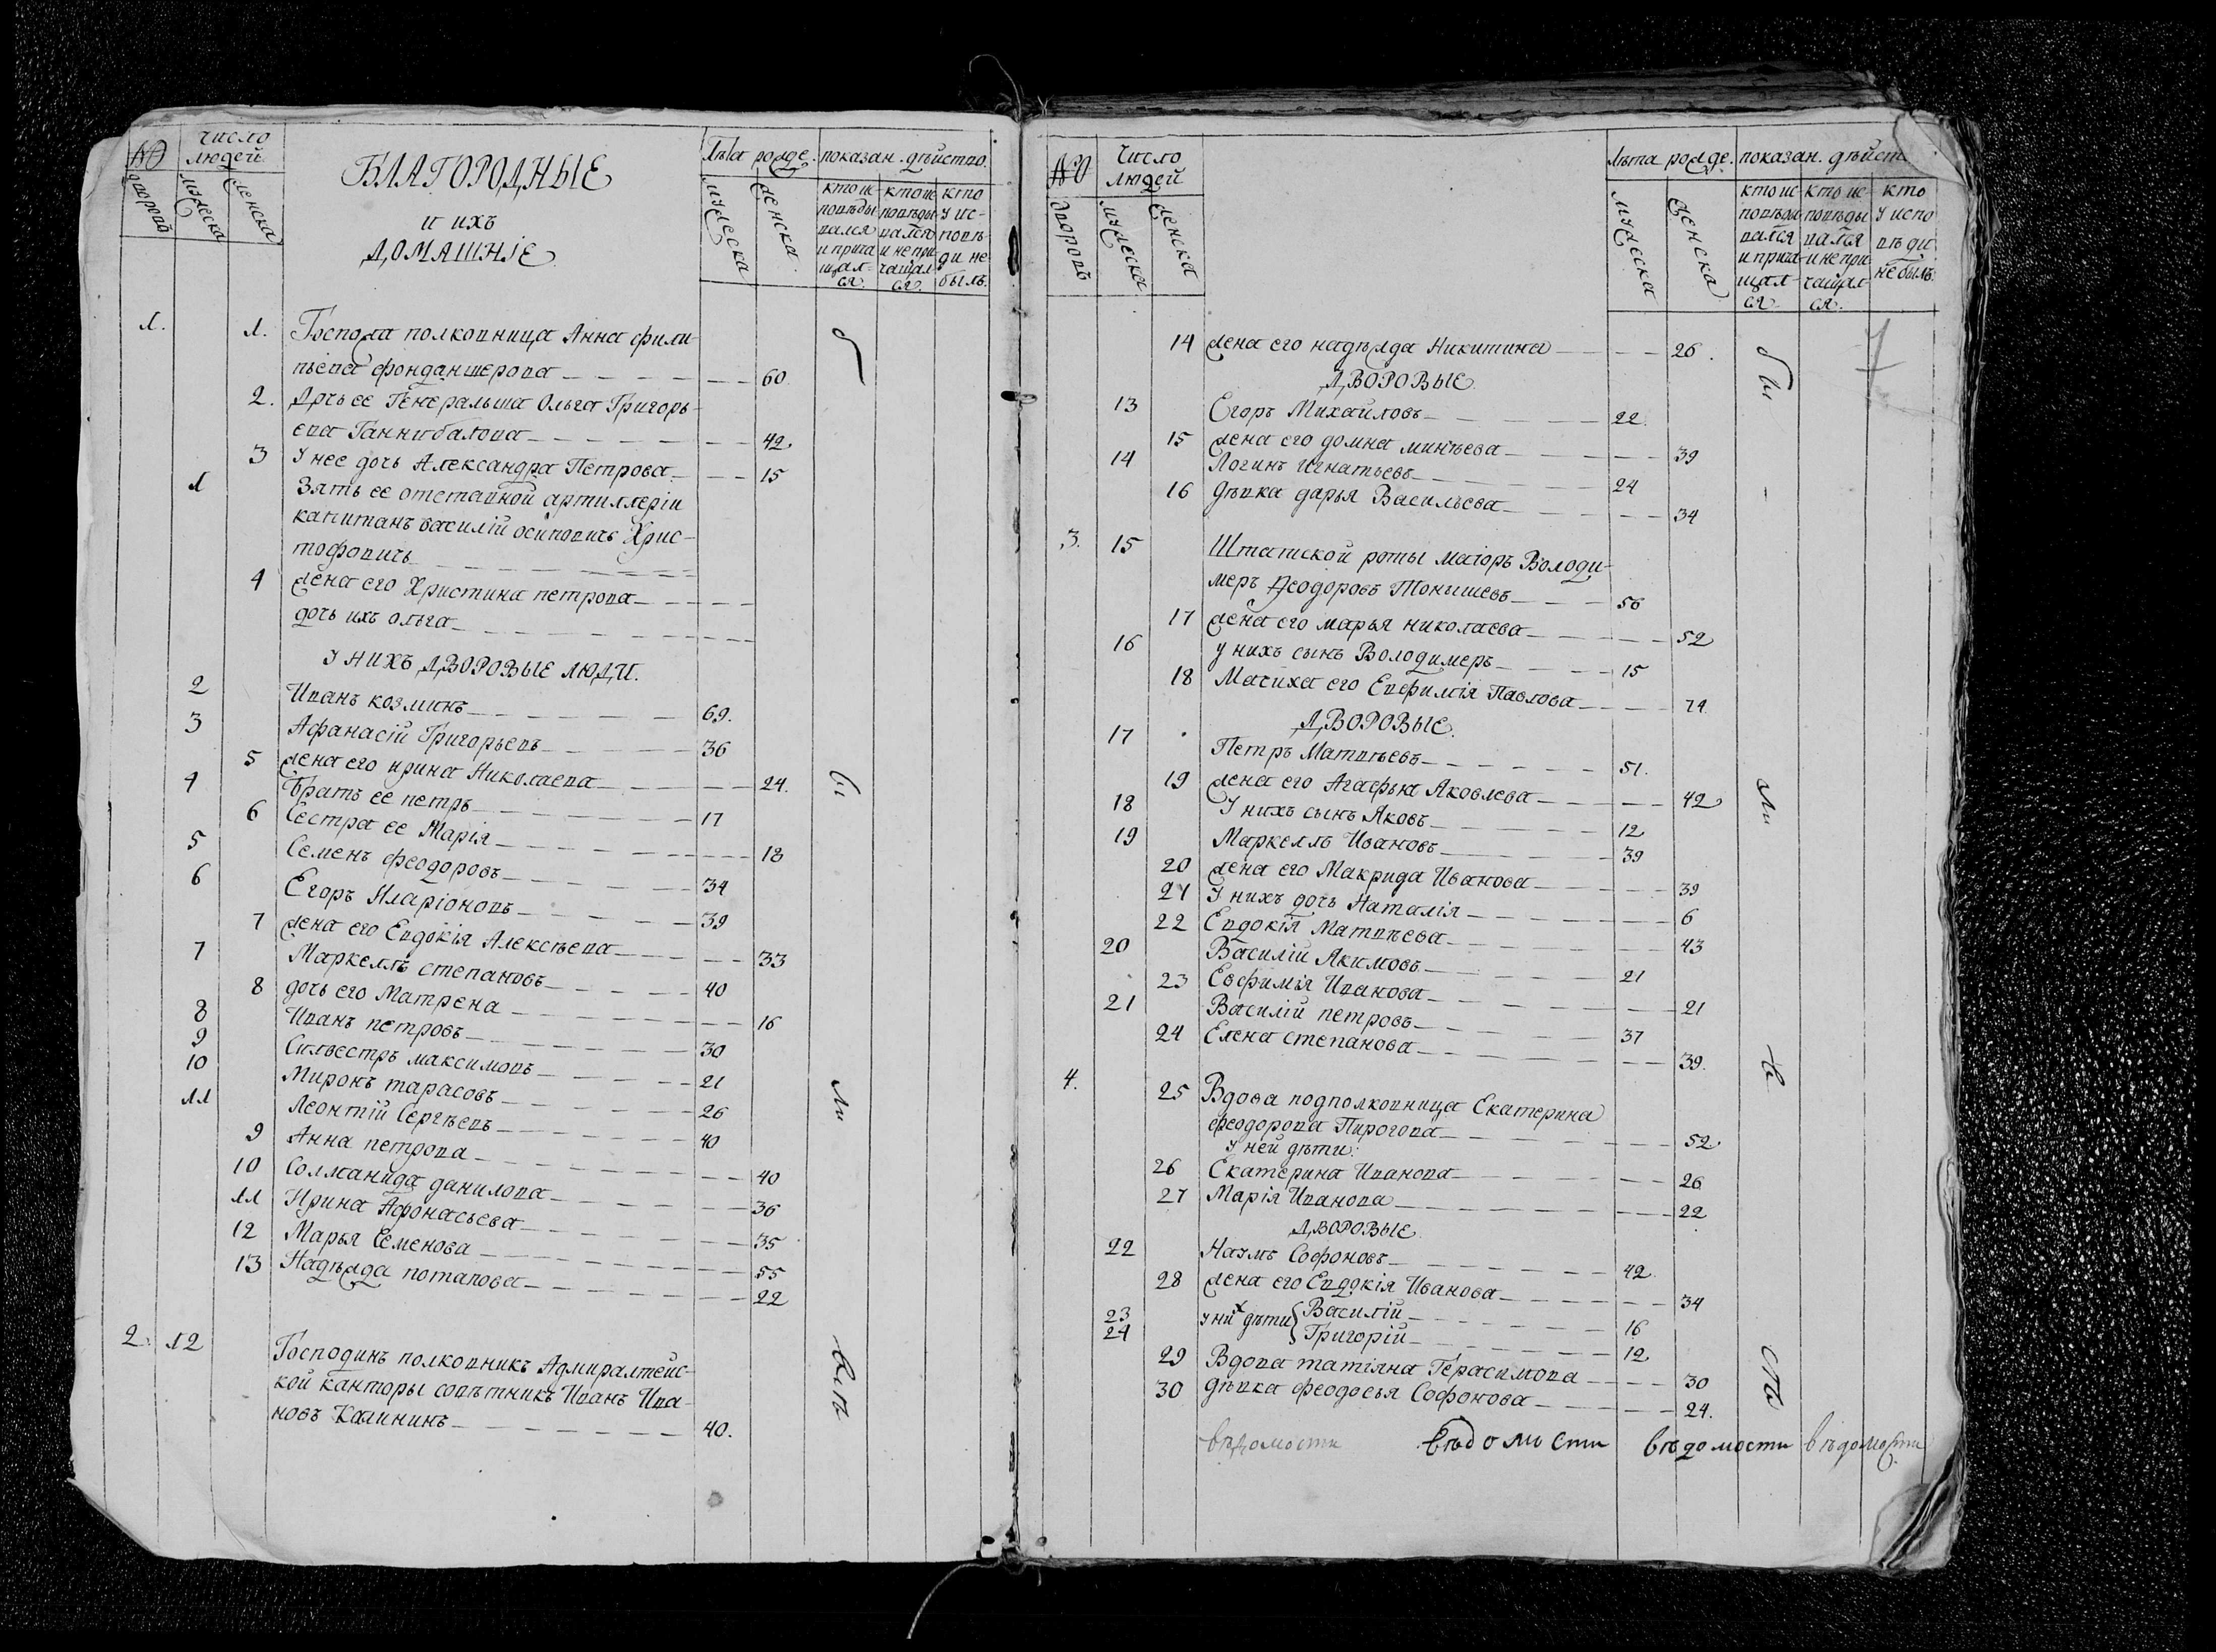 № Число людей БЛАГОРОДНЫЕ Лѣта рожде. показан. дѣйство.
дворов мужеска женска и ихъ мужеска женска. кто исповѣдывался и причащался. кто исповѣдывался и не причащался. кто у исповѣди не былъ.
ДОМАШНІЕ
1. 1. Госпожа полковница Анна фили-
пьева фонданшерова 60
2. Дочь ее Генеральша Ольга Григорь-
ева Ганнибалова 42
3 У нее дочь Александра Петрова 15
1 Зять ее отставной артиллеріи
капитанъ василій осиповичь Хрис-
тофовичь
4 жена его Христина петрова
дочь ихъ ольга
У НИХЪ ДВОРОВЫЕ ЛЮДИ.
2 Иванъ козминъ 69.
3 Афанасій Григорьевъ 36
5 жена его ирина Николаева 24.
4 Братъ ее петръ 17
6 Сестра ее Марія 18
5 Семенъ феодоровъ 34
6 Егоръ Иларіоновъ 39
7 жена его Евдокія Алексѣева 33
7 Маркеллъ степановъ 40
8 дочь его Матрена 16
8 Иванъ петровъ 30
9 Силвестръ максимовъ 21
10 Миронъ тарасовъ 26
11 Леонтій Сергѣевъ 40
9 Анна петрова 40
10 Солманида данилова 36
11 Ирина Афонасьева 35
12 Марья Семенова 55
13 Надѣжда потапова 22
2. 12 Господинъ полковникъ Адмиралтейс-
кой канторы совѣтникъ Иванъ Ива-
новъ Калининъ 40.
бы
ли
всѣ
№ Число людей Лѣта рожде. показан. дѣйст.
дворовъ мужеска женска мужеска женска кто исповѣдывался и причащался. кто исповѣдывался и не причащался. кто у исповѣди не былъ.
14 жена его надѣжда Никитина 26.
ДВОРОВЫЕ
13 Егоръ Михайловъ 22.
15 жена его домна минѣева 39
14 Логинъ Игнатьевъ 24
16 дѣвка дарья Васильева 34
3. 15 Штатской роты маіоръ Володи-
меръ Феодоровъ Тонышевъ 56
17 жена его марья николаева 52
16 у нихъ сынъ Володимеръ 15
18 Мачиха его Евфимія Павлова 74
ДВОРОВЫЕ.
17 Петръ Матвѣевъ 51.
19 жена его Агафья Яковлева 42
18 У нихъ сынъ Яковъ 12
19 Маркеллъ Ивановъ 39
20 жена его Макрида Иванова 39
21 У нихъ дочь Наталія 6
22 Евдокія Матвѣева 43
20 Василій Акимовъ 21
23 Евфимія Иванова 21
21 Василій петровъ 37
24 Елена степанова 39.
4. 25 Вдова подполковница Екатерина
феодорова Пирогова 52
У ней дѣти:
26 Екатерина Иванова 26
27 Марія Иванова 22
ДВОРОВЫЕ
22 Наумъ Софоновъ 42
28 жена его Евдокія Иванова 34
23 у них дѣти Василій 16
24 Григорій 12
29 Вдова татіяна Герасимова 30
30 дѣвка феодосья Софонова 24.
бы
ли
вѣдомости вѣдомости вѣдомости вѣдомости